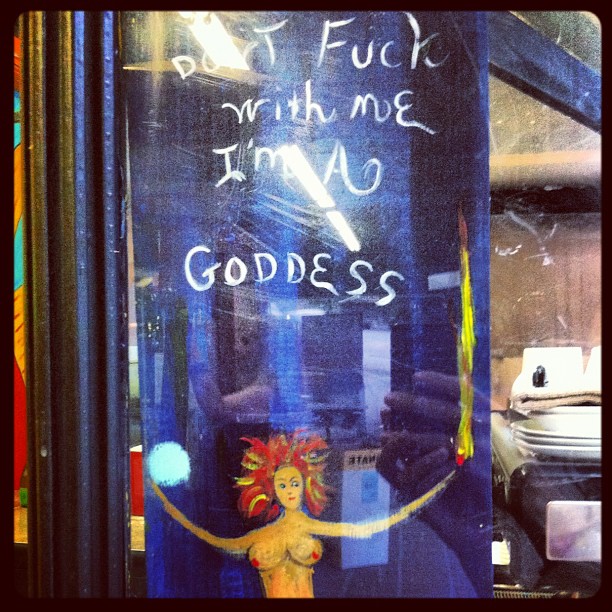 DON'T FUCK
with ME
I'm A
GODDESS